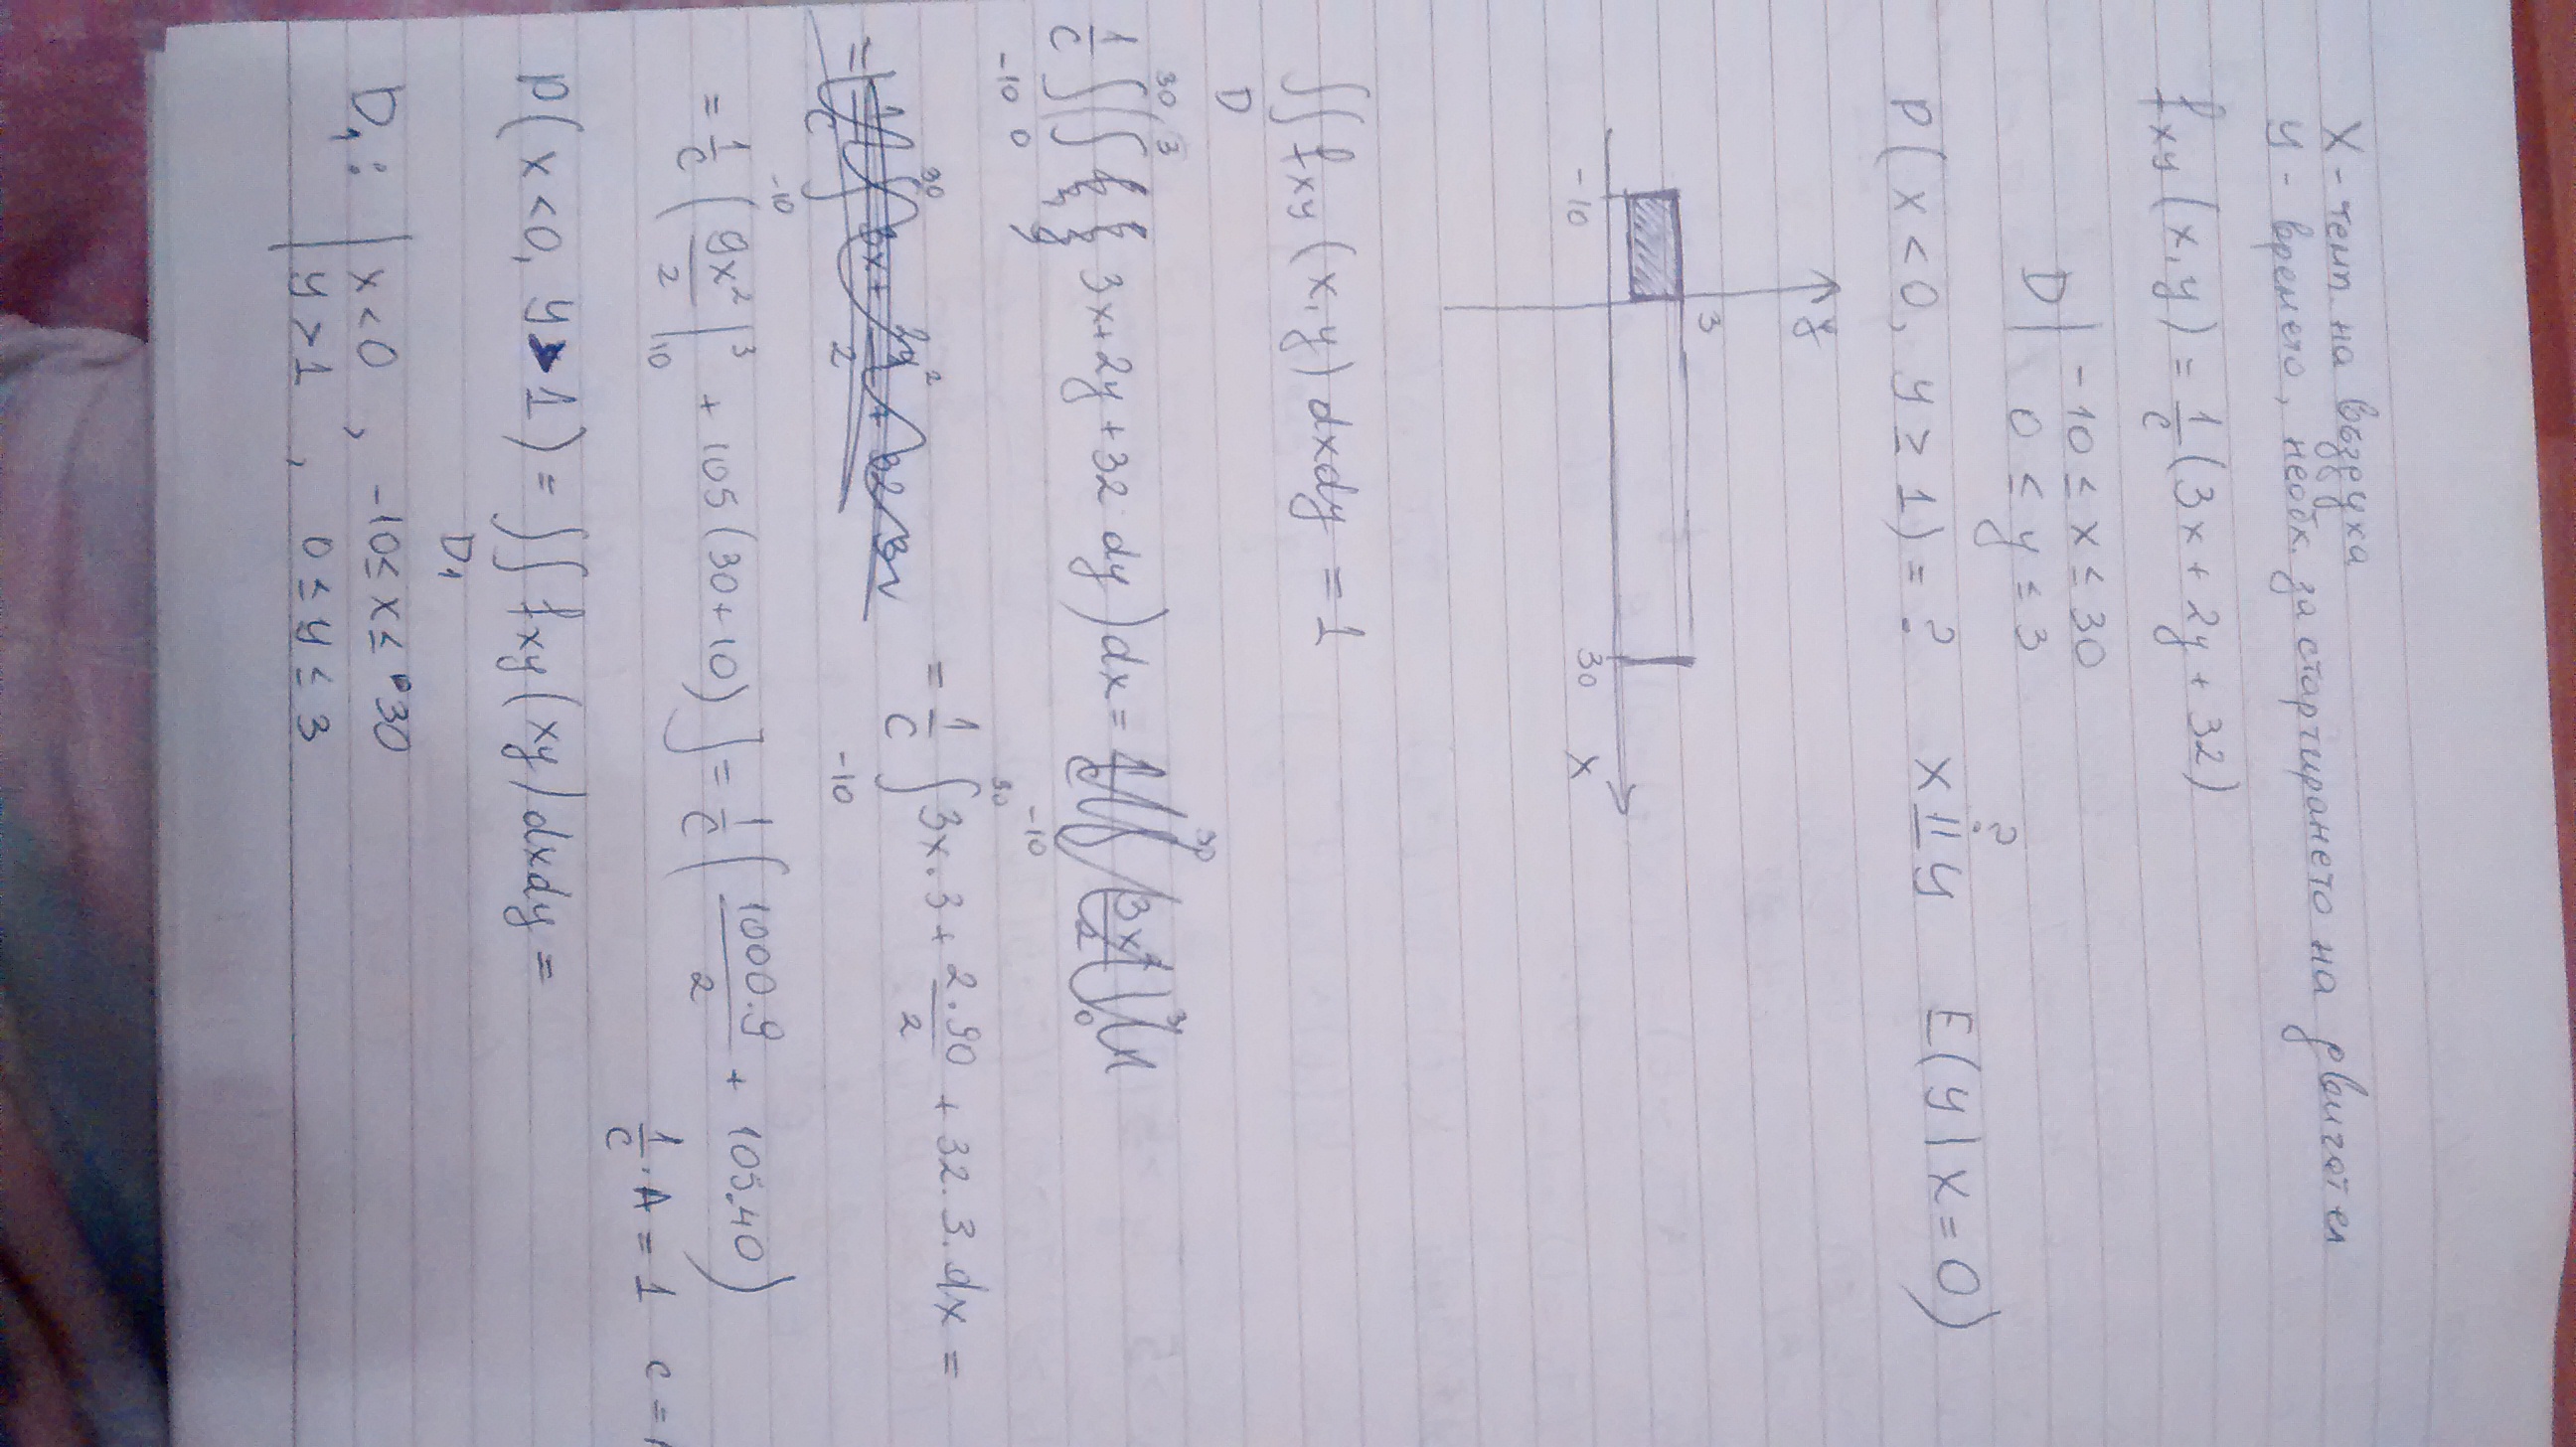 X - темп на въздуха
y - времето, необх. за стартирането на двигател
f xy (x,y) = 1/c (3x + 2y + 32)
D | -10 ≤ x ≤ 30
0 ≤ y ≤ 3
P(x < 0, y ≥ 1) = ? x ⫫ y ? E(y | x = 0)
y
3
-10 30 x
∫∫ f xy (x,y) dxdy = 1
D
1/c ∫_{-10}^{30} ∫_0^3 3x + 2y + 32 dy) dx =
= 1/c ∫_{-10}^{30} 3x.3 + 2.90/2 + 32.3.dx =
= 1/c ( 9x²/2 |_{10}^{3} + 105(30+10) ] = 1/c ( 1000.9/2 + 105.40 )
1/c . A = 1 c = 
P(x < 0, y > 1) = ∫∫ f xy (xy) dxdy =
D₁
D₁: | x < 0 , -10 ≤ x ≤ 30
y > 1 , 0 ≤ y ≤ 3